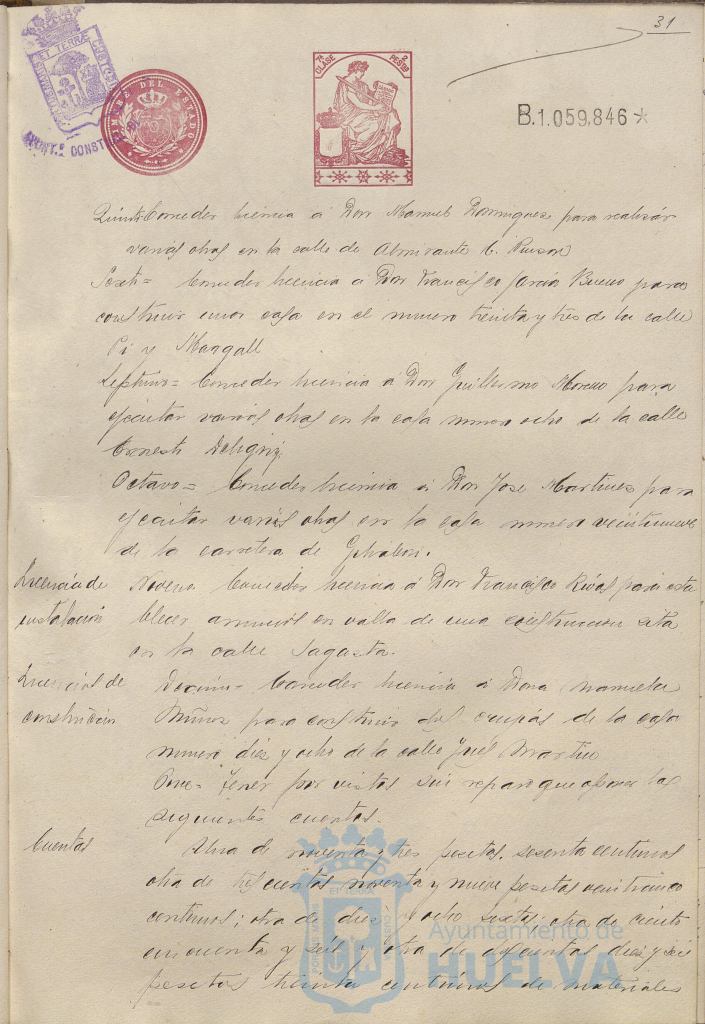 31
TIMBRE DEL ESTADO
7ª CLASE 2 PESTAS
B.1.059,846*
Quinto= Conceder licencia á Don Manuel Dominguez para realizar
varias obras en la calle de Almirante H. Pinzon
Sexto= Conceder licencia á Don Francisco Garcia Bueno para
construir una casa en el numero treinta y tres de la calle
Pi y Margall
Septimo= Conceder licencia á Don Guillermo Moreno para
ejecutar varias obras en la casa numero ocho de la calle
Ernesto Deligny
Octavo= Conceder licencia á Don Jose Martinez para
ejecutar varias obras en la casa numero veintinueve
de la carretera de Gibraleon.
Licencia de
instalación
Noveno Conceder licencia á Don Francisco Rivas para esta
blecer anuncios en valla de una construccion sita
en la calle Sagasta.
Licencias de
construcción
Decimo= Conceder licencia á Dona Manuela
Muñoz para construir dos en la casa
numero diez y ocho de la calle Martin
Once= Tener por vistas sin reparo que oponer las
siguientes cuentas.
Cuentas
Una de noventa y tres pesetas, sesenta centimos
otra de trescientas noventa y nueve pesetas veinticinco
centimos; otra de diez y ocho pesetas; otra de ciento
cincuenta y seis y otra de doscientas diez y seis
pesetas treinta centimos de materiales
Ayuntamiento de
HUELVA